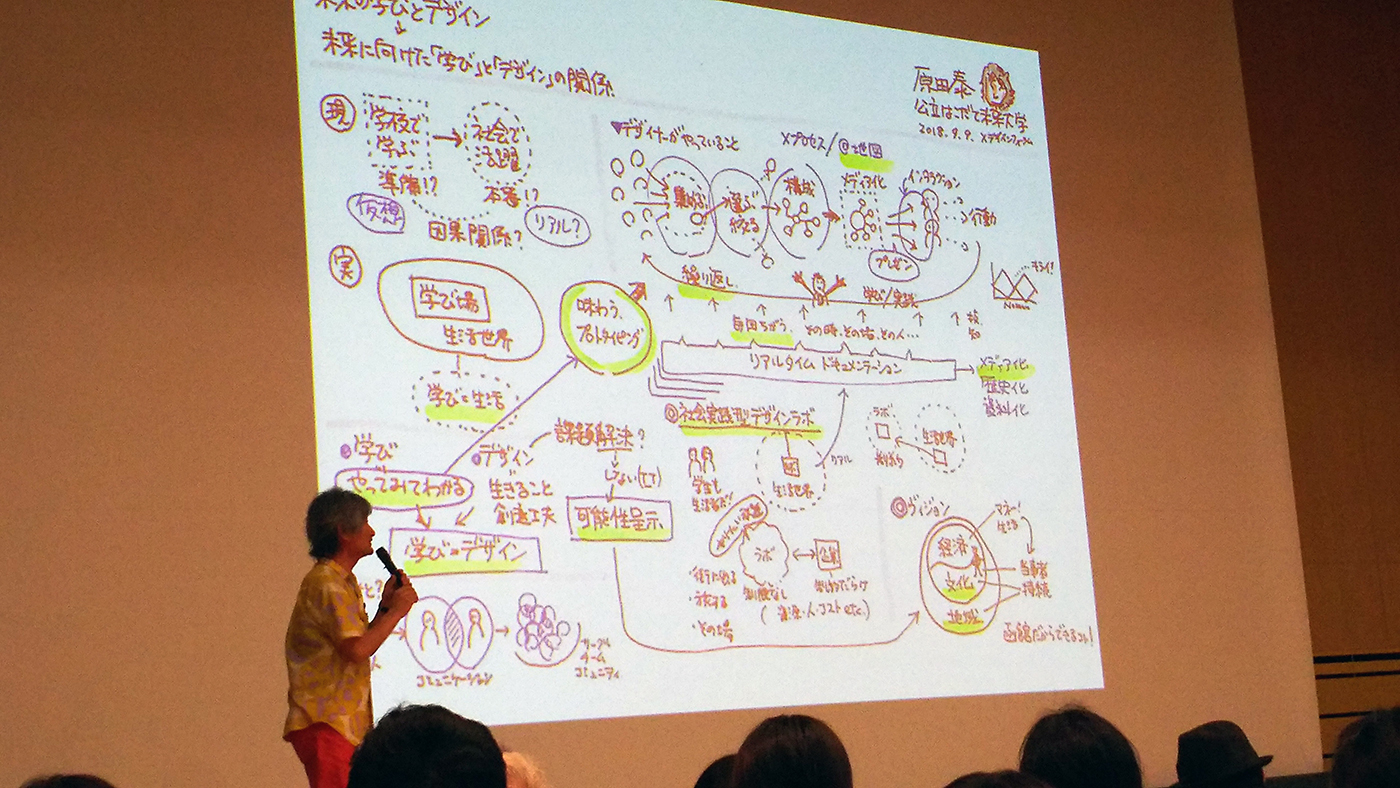 未来の学びとデザイン
未来に向けた「学び」と「デザイン」の関係
原田泰
公立はこだて未来大学
2018.9.9. Xデザインフォーラム
現
学校で
学ぶ
社会で
活躍
準備!?
本番!?
仮想
因果関係?
リアル?
▼デザイナーがやっていること
Xプロセス/@地図
集める
選ぶ
絞る
構成
メディア化
インタラクション
行動
プレゼン
繰り返し
学び/実践
実
学び場
生活世界
学び=生活
味わう
プロトタイピング
毎回ちがう
その時、その場、その人…
リアルタイム ドキュメンテーション
メディア化
歴史化
資料化
学び
やってみてわかる
デザイン
生きること
創意工夫
課題解決?
しない(tt)
可能性呈示
学び=デザイン
コミュニケーション
サークル
チーム
コミュニティ
◎社会実践型デザインラボ
学生も
生活者だ!
生活世界
リアル
ラボ
生活世界
ラボ
企業
制限なし
制約だらけ
(資源・人・コスト etc.)
・街に出る
・旅する
・その場
◎ヴィジョン
経済
文化
地域
マネー!
生活
当事者
持続
函館だからできるコト!